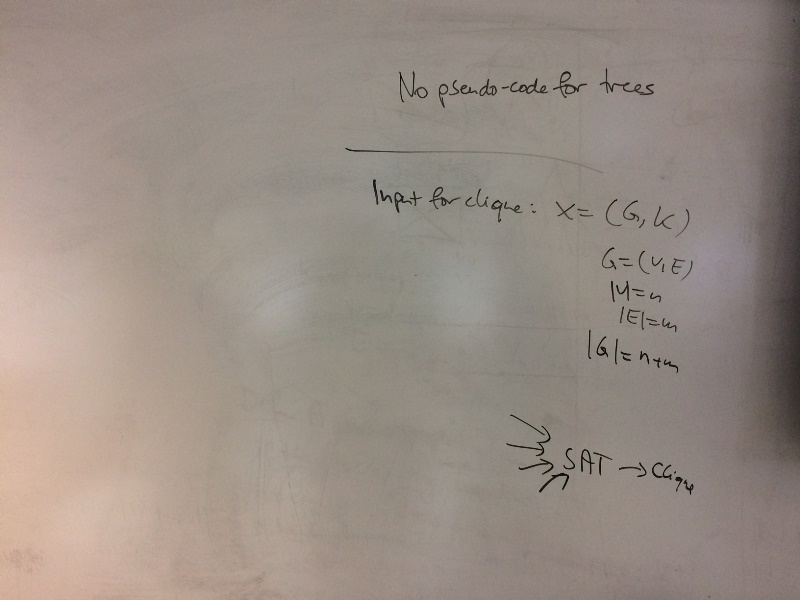 No pseudo-code for trees
Input for clique: X = (G, K)
G=(V,E)
|V|=n
|E|=m
|G|=n+m
SAT → Clique